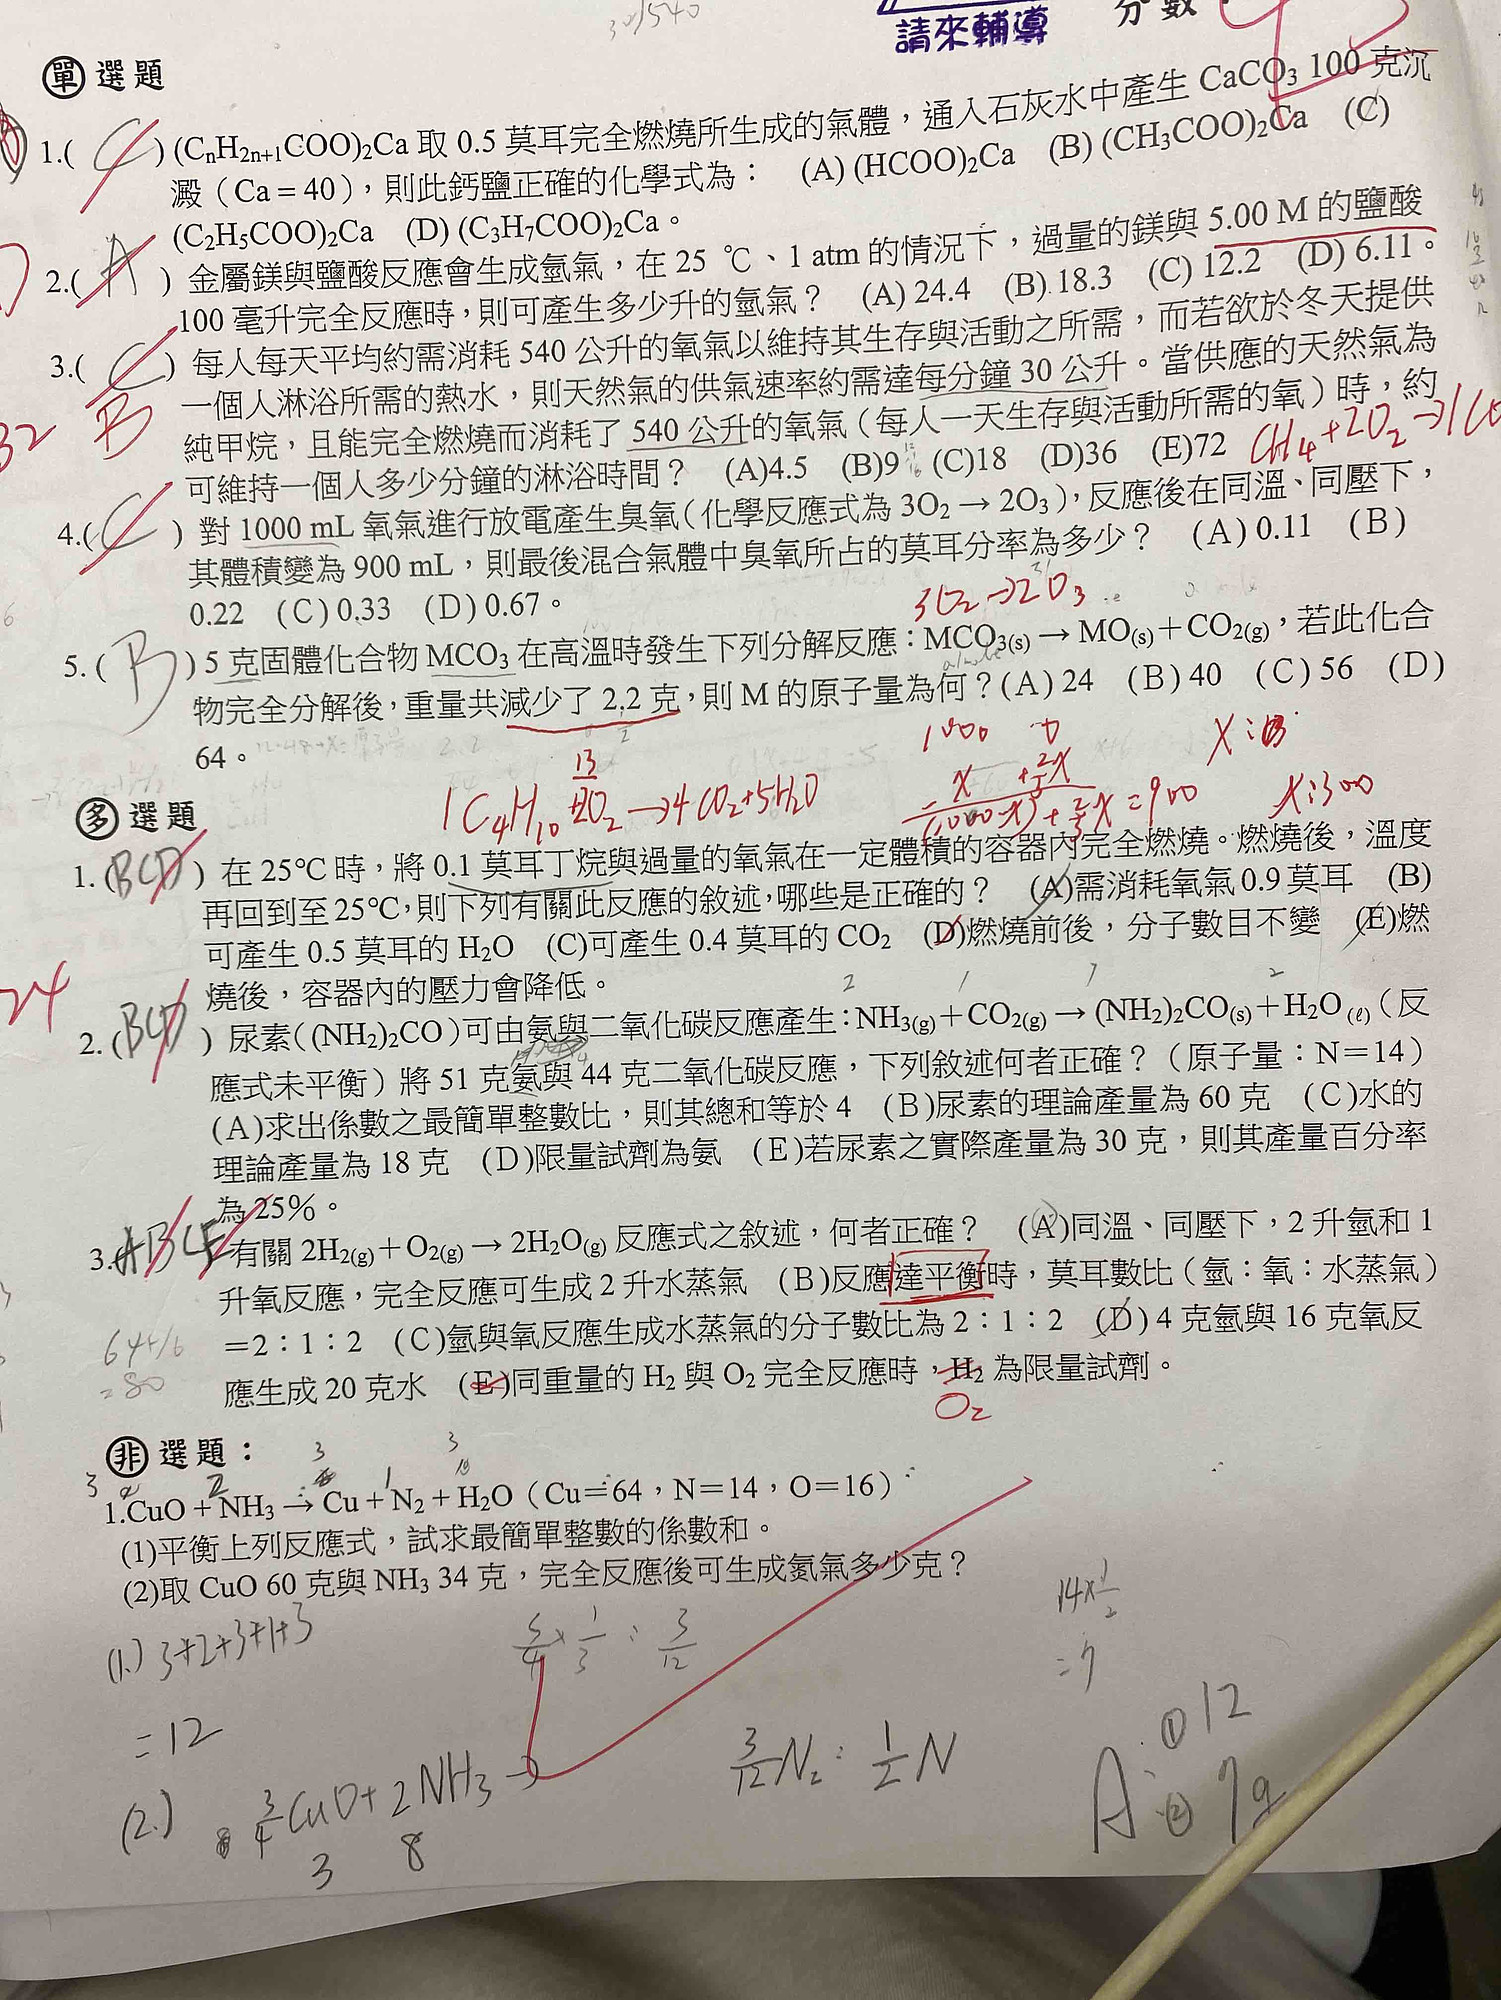 30/540
請來輔導
分數：
單選題
1.( C ) (CnH2n+1COO)2Ca 取 0.5 莫耳完全燃燒所生成的氣體，通入石灰水中產生 CaCO3 100 克沉
澱（Ca＝40），則此鈣鹽正確的化學式為： (A) (HCOO)2Ca (B) (CH3COO)2Ca (C)
(C2H5COO)2Ca (D) (C3H7COO)2Ca。
2.( A ) 金屬鎂與鹽酸反應會生成氫氣，在 25 ℃、1 atm 的情況下，過量的鎂與 5.00 M 的鹽酸
100 毫升完全反應時，則可產生多少升的氫氣？ (A) 24.4 (B) 18.3 (C) 12.2 (D) 6.11。
3.( C ) 每人每天平均約需消耗 540 公升的氧氣以維持其生存與活動之所需，而若欲於冬天提供
B
一個人淋浴所需的熱水，則天然氣的供氣速率約需達每分鐘 30 公升。當供應的天然氣為
純甲烷，且能完全燃燒而消耗了 540 公升的氧氣（每人一天生存與活動所需的氧）時，約
可維持一個人多少分鐘的淋浴時間？ (A)4.5 (B)9 (C)18 (D)36 (E)72
CH4+2O2→1CO
4.( C ) 對 1000 mL 氧氣進行放電產生臭氧（化學反應式為 3O2 → 2O3），反應後在同溫、同壓下，
其體積變為 900 mL，則最後混合氣體中臭氧所占的莫耳分率為多少？ (A) 0.11 (B)
0.22 (C) 0.33 (D) 0.67。
3O2→2O3
5. ( B ) 5 克固體化合物 MCO3 在高溫時發生下列分解反應：MCO3(s) → MO(s)＋CO2(g)，若此化合
物完全分解後，重量共減少了 2.2 克，則 M 的原子量為何？(A) 24 (B) 40 (C) 56 (D)
64。
1C4H10 + 13/2 O2→4CO2+5H2O
1000 0
x +2/3x
(1000-x)+2/3x=900
x:300
多選題
1. (BCD) 在 25℃時，將 0.1 莫耳丁烷與過量的氧氣在一定體積的容器內完全燃燒。燃燒後，溫度
再回到至 25℃，則下列有關此反應的敘述，哪些是正確的？ (A)需消耗氧氣 0.9 莫耳 (B)
可產生 0.5 莫耳的 H2O (C)可產生 0.4 莫耳的 CO2 (D)燃燒前後，分子數目不變 (E)燃
燒後，容器內的壓力會降低。
24
2 1 1 2
2. (BCD) 尿素（(NH2)2CO）可由氨與二氧化碳反應產生：NH3(g)＋CO2(g) → (NH2)2CO(s)＋H2O(ℓ)（反
應式未平衡）將 51 克氨與 44 克二氧化碳反應，下列敘述何者正確？（原子量：N＝14）
(A)求出係數之最簡單整數比，則其總和等於 4 (B)尿素的理論產量為 60 克 (C)水的
理論產量為 18 克 (D)限量試劑為氨 (E)若尿素之實際產量為 30 克，則其產量百分率
為 25％。
3. ABCE 有關 2H2(g)＋O2(g) → 2H2O(g) 反應式之敘述，何者正確？ (A)同溫、同壓下，2 升氫和 1
升氧反應，完全反應可生成 2 升水蒸氣 (B)反應達平衡時，莫耳數比（氫：氧：水蒸氣）
＝2：1：2 (C)氫與氧反應生成水蒸氣的分子數比為 2：1：2 (D) 4 克氫與 16 克氧反
應生成 20 克水 (E)同重量的 H2 與 O2 完全反應時，H2 為限量試劑。
O2
64+16
=80
非選題：
3 2 3 1 3
1.CuO + NH3 → Cu + N2 + H2O（Cu＝64，N＝14，O＝16）
(1)平衡上列反應式，試求最簡單整數的係數和。
(2)取 CuO 60 克與 NH3 34 克，完全反應後可生成氮氣多少克？
(1.) 3+2+3+1+3
=12
14×1/2
=7
(2.) 3/4 CuO+2NH3→
3 8
3/12 N2 : 1/2 N
A: ①12
②7g